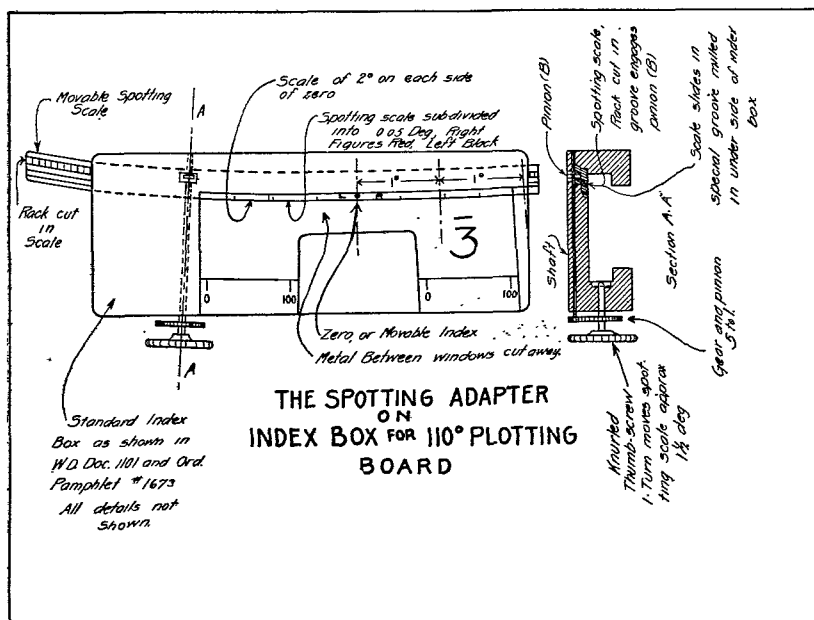 Movable Spotting
Scale
A
Scale of 2° on each side
of zero
Spotting scale sub-divided
into 0.05 Deg, Right
Figures Red, Left Black
1°
1°
L
R
Rack cut
in
Scale
3
0
100
0
100
Zero, or Movable Index
Metal Between windows cut away.
A
Standard Index
Box as shown in
W.D. Doc. 1101 and Ord.
Pamphlet #1673
All details not
shown.
THE SPOTTING ADAPTER
ON
INDEX BOX FOR 110° PLOTTING
BOARD
Pinion (B)
Spotting scale,
Rack cut in
groove engages
pinion (B)
Scale slides in
special groove milled
in under side of index
box
Shaft
Section A.A"
Gear and pinion
5 to 1.
Knurled
Thumb-screw
1-Turn moves spot-
ting scale approx
1½ deg